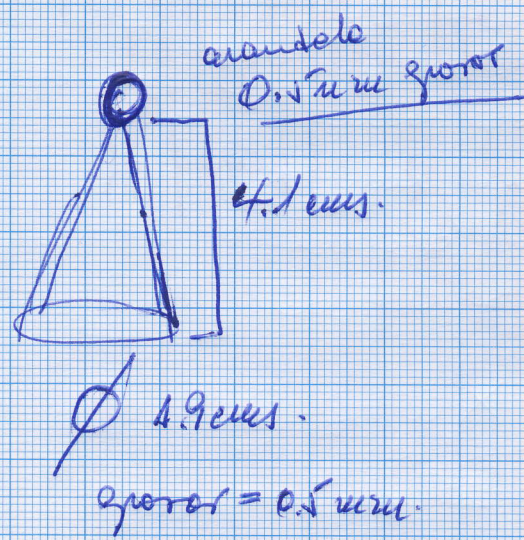 arandela
0.5 mm grosor
4.1 cms.
Ø 1.9 cms.
grosor = 0.5 mm.